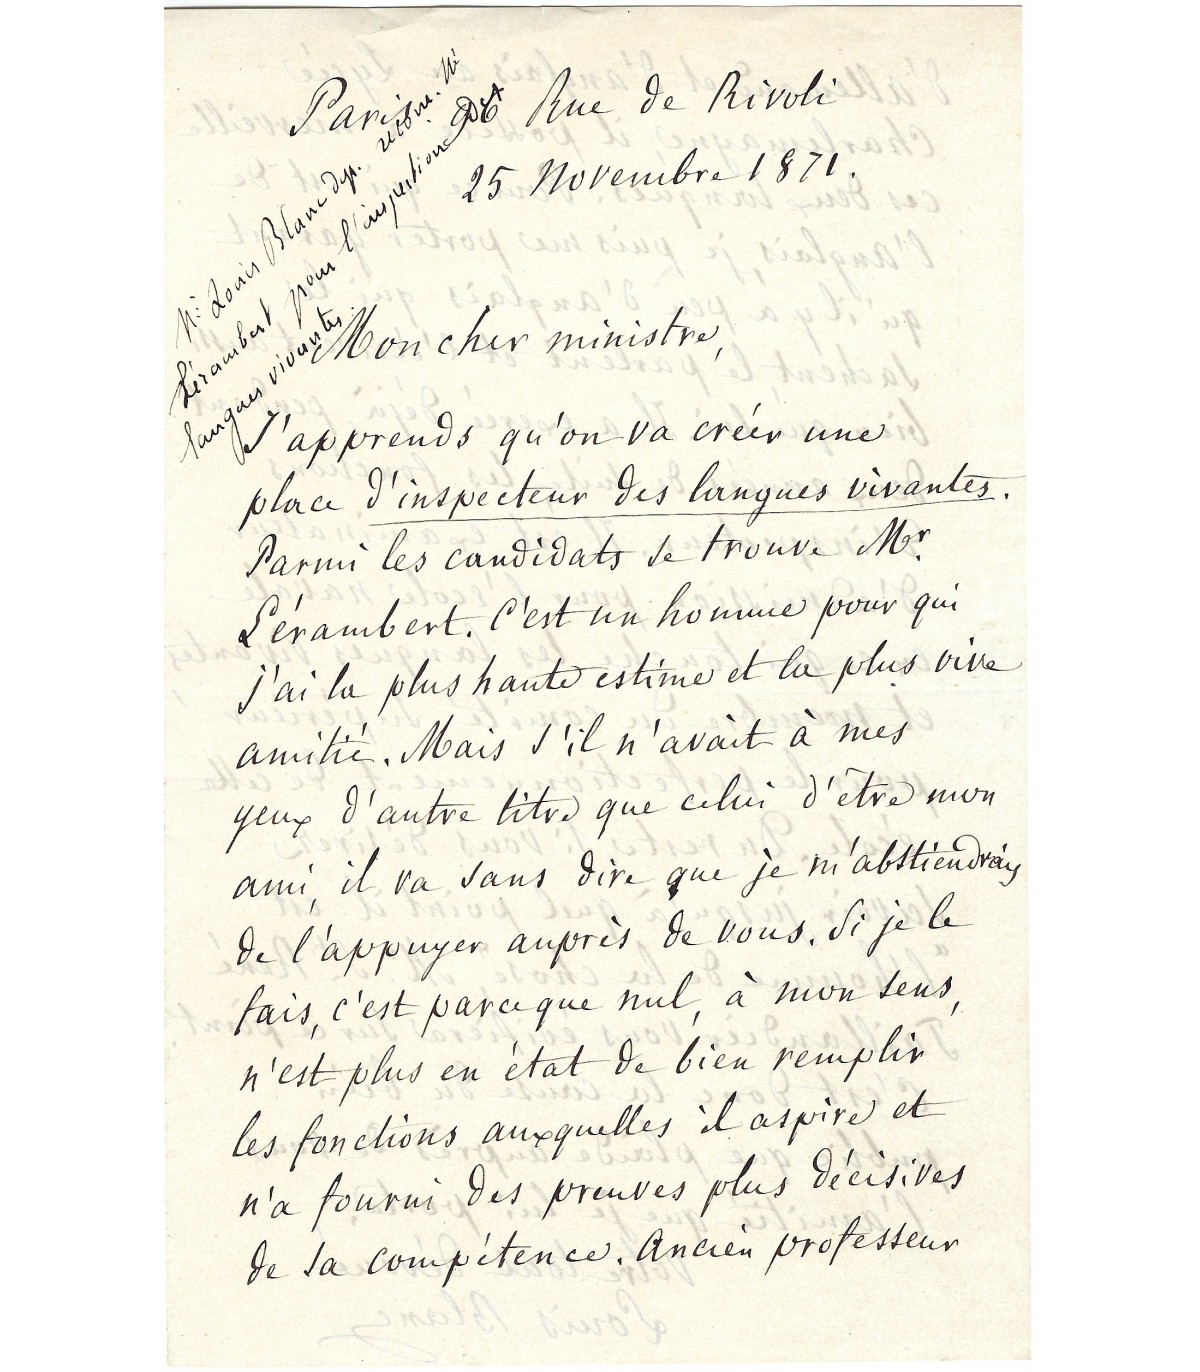 Paris. 96 Rue de Rivoli
25 Novembre 1871.
Mr Louis Blanc dép. recom. Mr
Lérambert pour l'inspection des
langues vivantes.
Mon cher ministre,
J'apprends qu'on va créer une
place d'inspecteur des langues vivantes.
Parmi les candidats se trouve Mr.
Lérambert. C'est un homme pour qui
j'ai la plus haute estime et la plus vive
amitié. Mais s'il n'avait à mes
yeux d'autre titre que celui d'être mon
ami, il va sans dire que je m'abstiendrais
de l'appuyer auprès de vous. Si je le
fais, c'est parceque nul, à mon sens,
n'est plus en état de bien remplir
les fonctions auxquelles il aspire et
n'a fourni des preuves plus décisives
de sa compétence. Ancien professeur